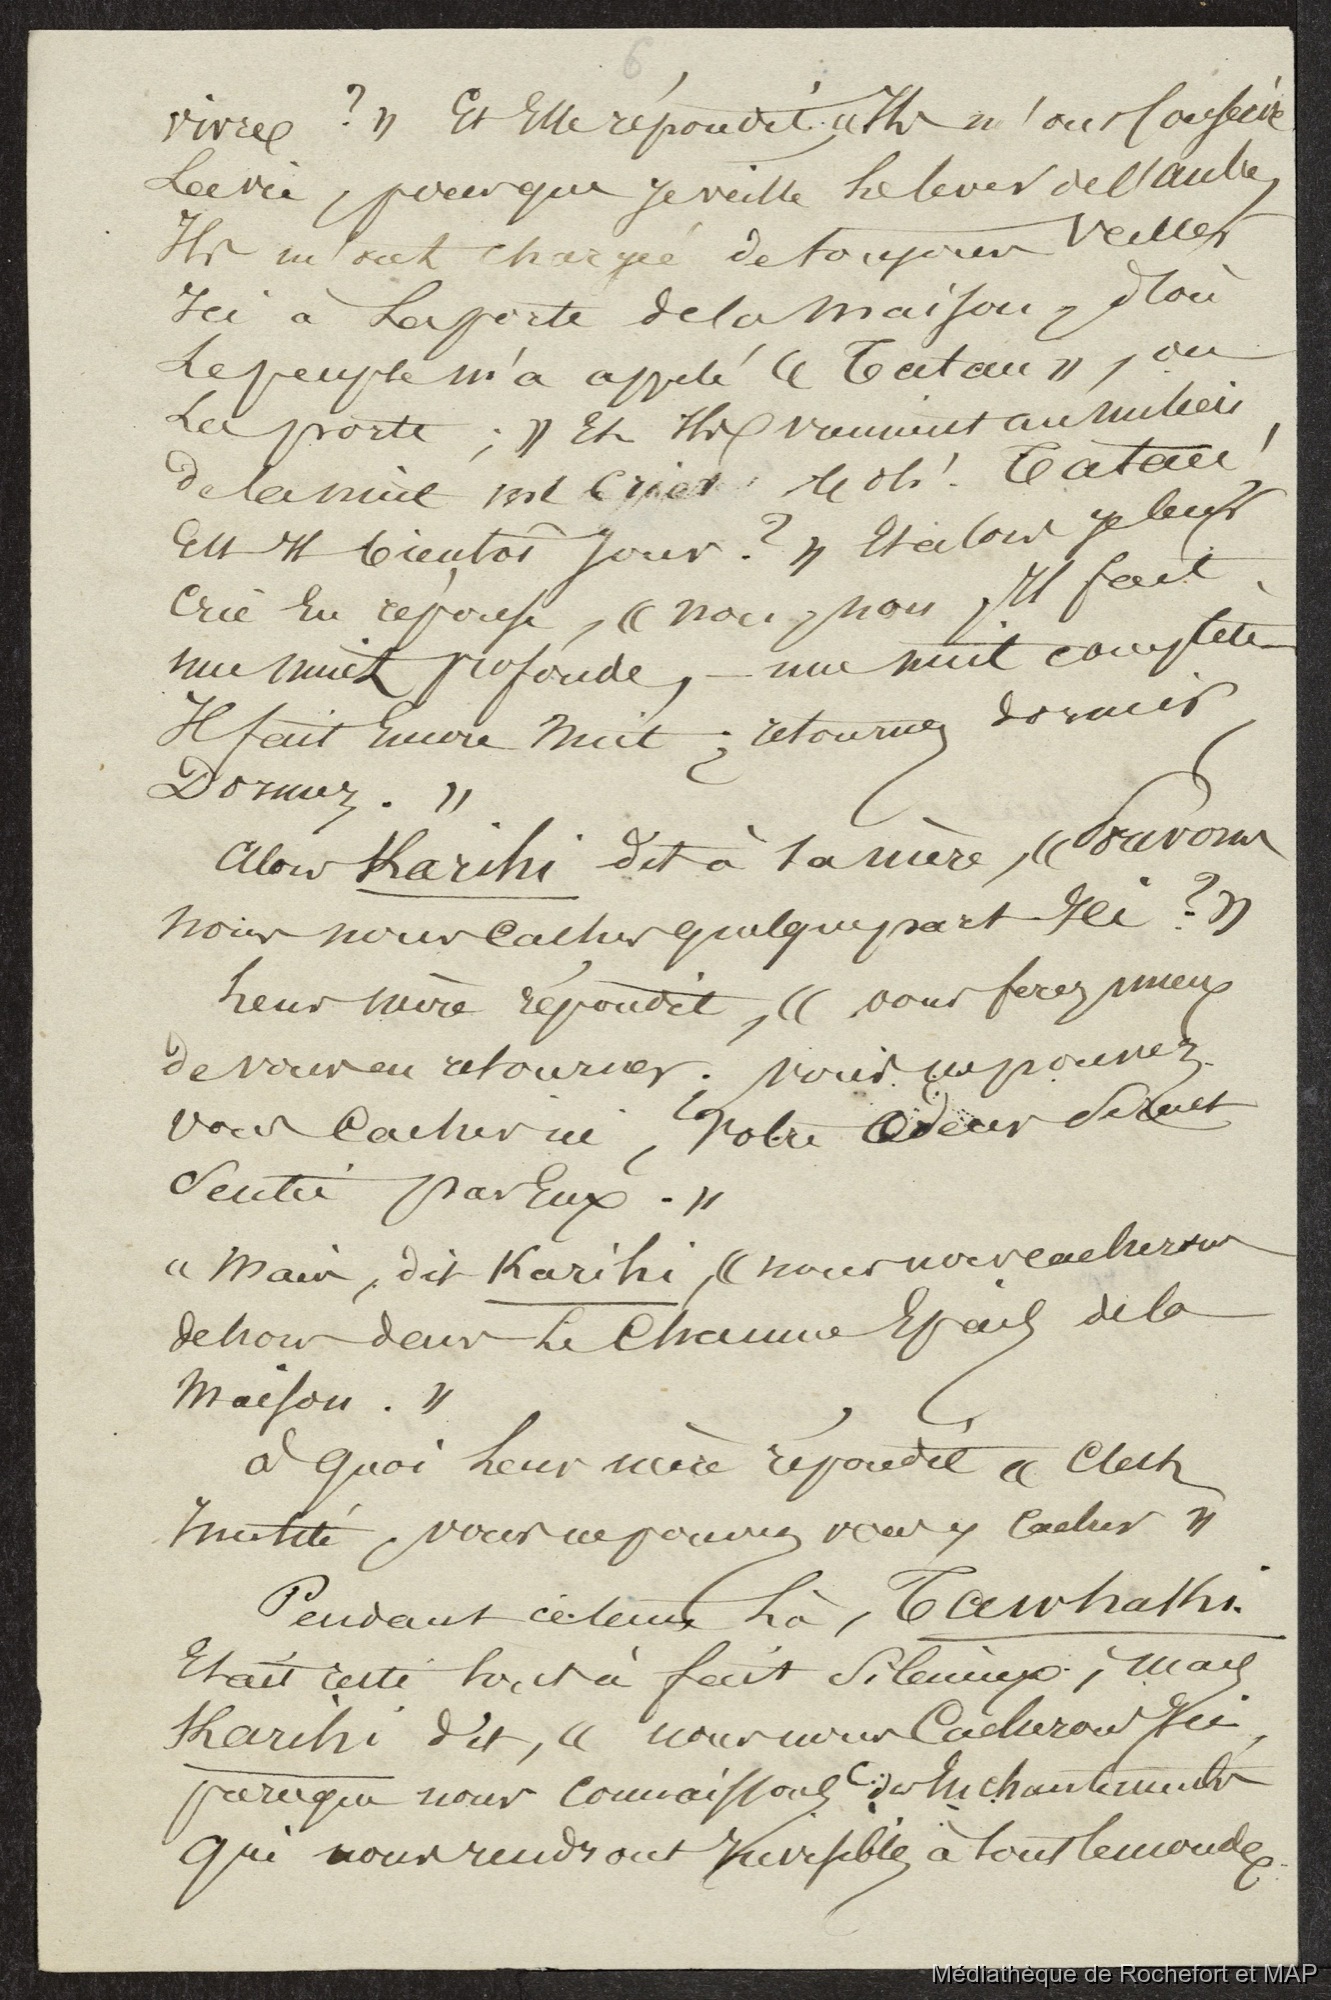 6
vivre ? » Et Elle répondit, « Ils m'ont Conservé
La vie, pour que je veille Le lever de l'aube,
Ils m'ont chargée de toujours veiller
Ici à La porte de la Maison, d'où
Le peuple m'a appelé « Tatau », ou
La porte ; » Et Ils viennent au milieu
de la nuit me Crier : « oh ! Tatau !
Est Il bientôt Jour ? » Et alors je leur
Crie En réponse, « non, non, Il fait
une nuit profonde, — une nuit complète —
Il fait Encore Nuit ; retournez dormir,
Dormez. »
Alors Karihi dit à sa mère, « Pouvons
nous nous Cacher quelque part Ici ? »
Leur mère répondit, « vous ferez mieux
de vous en retourner. vous ne pouvez
vous Cacher ici, Votre Odeur Serait
Sentie par Eux. »
« Mais, dit Karihi, « nous nous cacherons
dehors dans Le Chaume Epais de la
Maison. »
à Quoi Leur mère répondit « C'est
Inutile, vous ne pouvez vous y Cacher »
Pendant ce tems Là, Tawhaki
Etait resté tout à fait Silencieux ; mais
Karihi dit, « nous nous Cacherons Ici,
parceque nous Connaissons des Enchantements
Qui nous rendront Invisibles à tout le monde.
Médiathèque de Rochefort et MAP